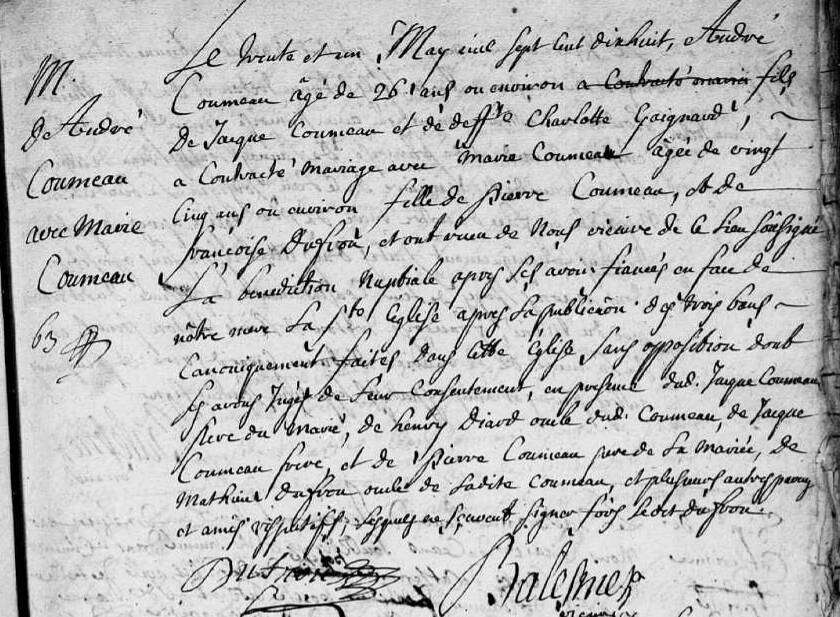 M.
de André
Coumeau
avec Marie
Coumeau
63
Le trente et un May mil sept cent dixhuit, André
Coumeau âgé de 26 ans ou environ a Contracté fils
de Jacque Coumeau et de deffte Charlotte Gaignard,
a Contracté Mariage avec Marie Coumeau âgée de vingt
Cinq ans ou environ fille de Pierre Coumeau, et de
françoise Dufrou, et ont receu de Nous vicaire de ce lieu soussigné
La benediction Nuptiale apres les avoir fiancés en face de
nôtre mere La Ste Eglise apres la publicaõn des trois bans
Canoniquement faites dans cette Eglise sans opposition dont
les avons Jugés de leur Consentement, en presence dud. Jacque Coumeau
Pere du Marié, de henry Diard oncle dud. Coumeau, de Jacque
Coumeau frere, et de Pierre Coumeau pere de La Mariée, de
Mathieu Dufrou oncle de ladite Coumeau, et plusieurs autres parens
et amis respectifs, lesquels ne sçavent signer fors le dit dufrou.